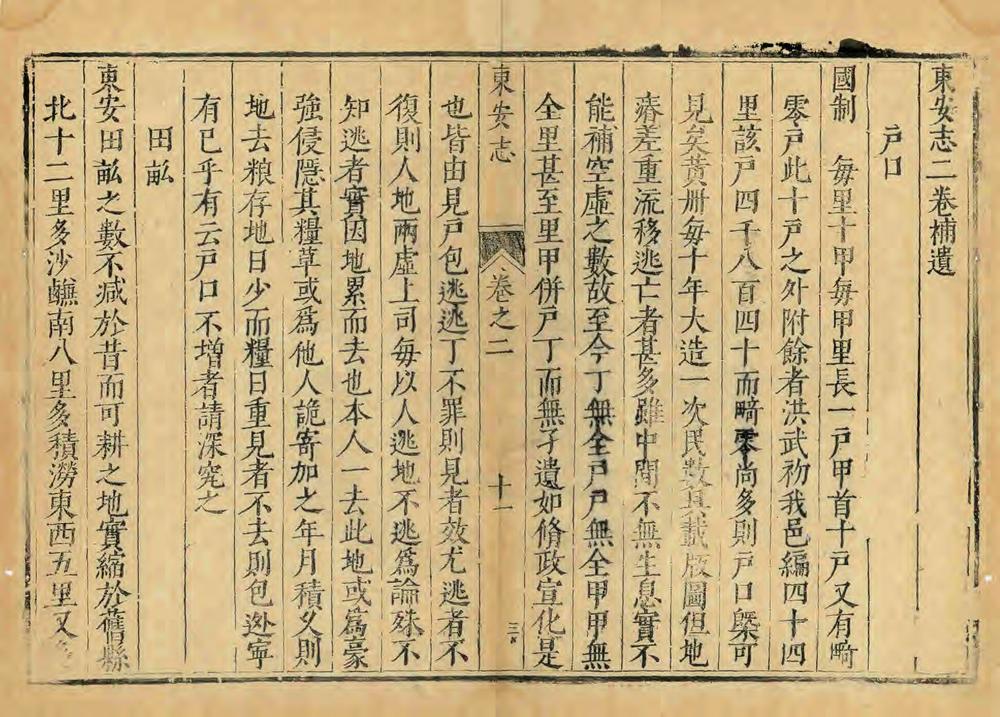 東安志二卷補遺
戸口
國制　每里十甲每甲里長一戸甲首十戸又有畸
零戸此十戸之外附餘者洪武初我邑編四十四
里該戸四千八百四十而畸零尚多則戸口槩可
見矣黃册每十年大造一次民數具載版圖但地
瘠差重流移逃亡者甚多雖中間不無生息實不
能補空虛之數故至今丁無全戸戸無全甲甲無
全里甚至里甲併戸丁而無孑遺如脩政宣化是
東安志　卷之二　十一
也皆由見戸包逃逃丁不罪則見者效尤逃者不
復則人地兩虛上司每以人逃地不逃爲論殊不
知逃者實因地累而去也本人一去此地或爲豪
強侵隱其糧草或爲他人詭寄加之年月積久則
地去粮存地日少而糧日重見者不去則包迯寧
有已乎有云戸口不增者請深究之
田畝
東安田畝之數不减於昔而可耕之地實縮於舊縣
北十二里多沙鹻南八里多積澇東西五里又